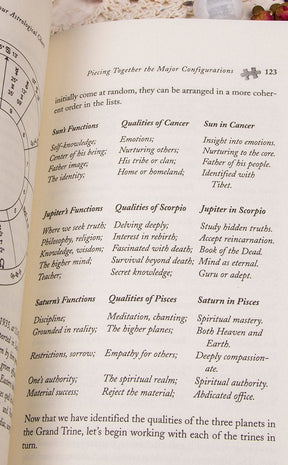 our Astrological Chart
Piecing Together the Major Configurations 123
initially come at random, they can be arranged in a more coher-
ent order in the lists.
Sun's Functions Qualities of Cancer Sun in Cancer
Self-knowledge; Emotions; Insight into emotions.
Center of his being; Nurturing others; Nurturing to the core.
Father image; His tribe or clan; Father of his people.
The identity; Home or homeland; Identified with
Tibet.
Jupiter's Functions Qualities of Scorpio Jupiter in Scorpio
Where we seek truth; Delving deeply; Study hidden truths.
Philosophy, religion; Interest in rebirth; Accept reincarnation.
Knowledge, wisdom; Fascinated with death; Book of the Dead.
The higher mind; Survival beyond death; Mind as eternal.
Teacher; Secret knowledge; Guru or adept.
Saturn's Functions Qualities of Pisces Saturn in Pisces
Discipline; Meditation, chanting; Spiritual mastery.
Grounded in reality; The higher planes; Both Heaven and
Earth.
Restrictions, sorrow; Empathy for others; Deeply compassion-
ate.
One's authority; The spiritual realm; Spiritual authority.
Material success; Reject the material; Abdicated office.
Now that we have identified the qualities of the three planets in
the Grand Trine, let's begin working with each of the trines in
turn.